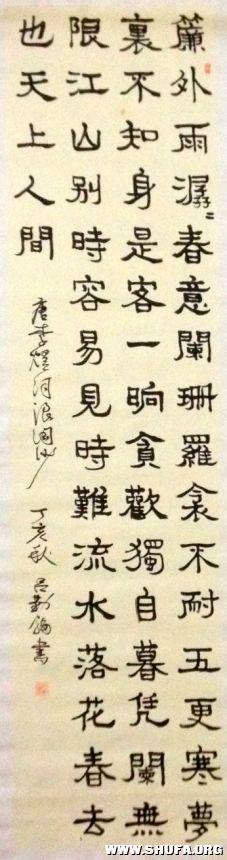 簾外雨潺〻春意闌珊羅衾不耐五更寒夢
裏不知身是客一晌貪歡獨自暮凭闌無
限江山别時容易見時難流水落花春去
也天上人間
唐李煜词浪淘沙 丁亥秋 吕書
WWW.SHUFA.ORG